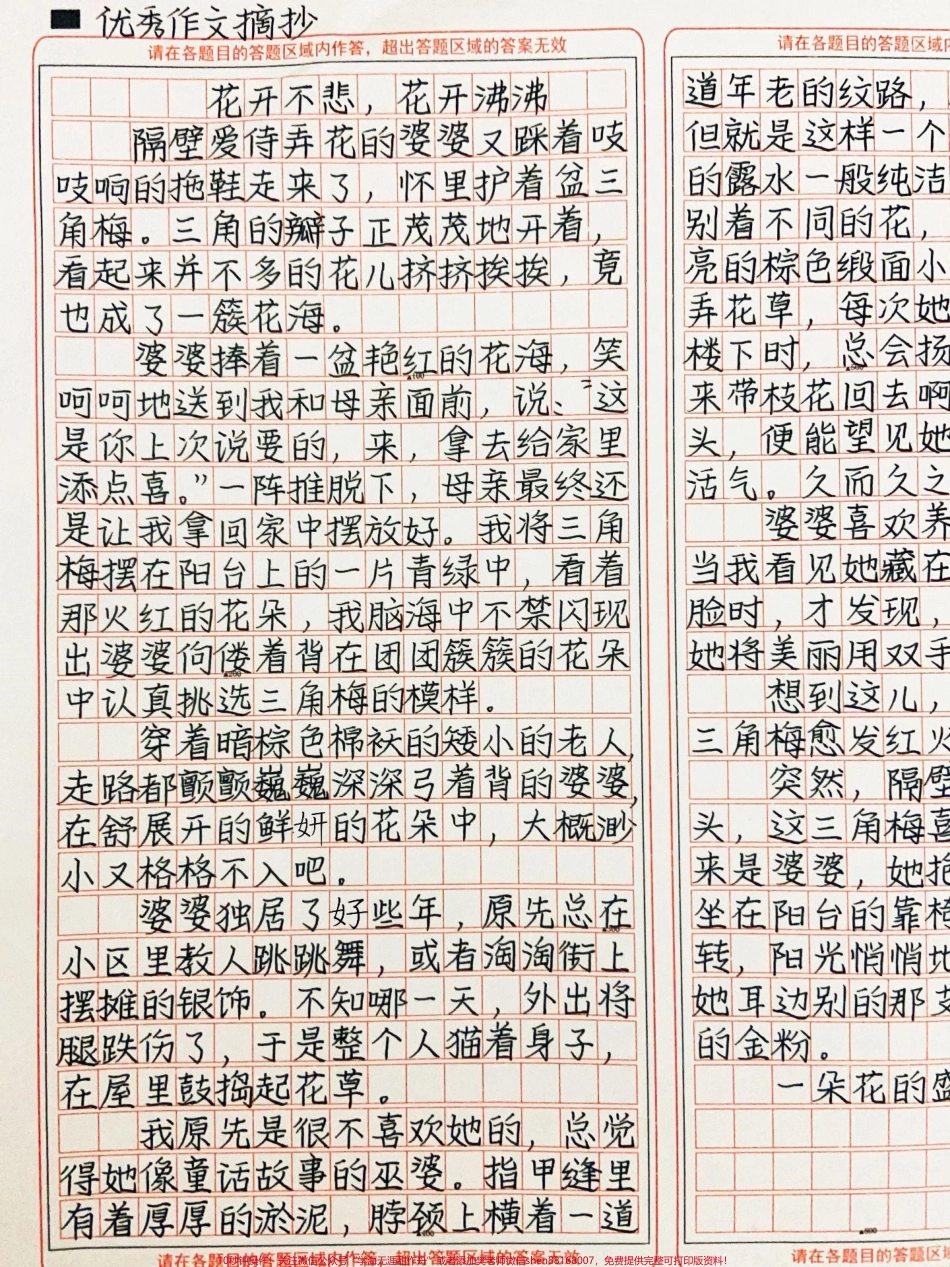 优秀作文摘抄
请在各题目的答题区域内作答，超出答题区域的答案无效
花开不悲，花开沸沸
隔壁爱侍弄花的婆婆又踩着吱
吱响的拖鞋走来了，怀里护着盆三
角梅。三角的瓣子正茂茂地开着，
看起来并不多的花儿挤挤挨挨，竟
也成了一簇花海。
婆婆捧着一盆艳红的花海，笑
呵呵地送到我和母亲面前，说："这
是你上次说要的，来，拿去给家里
添点喜。"一阵推脱下，母亲最终还
是让我拿回家中摆放好。我将三角
梅摆在阳台上的一片青绿中，看着
那火红的花朵，我脑海中不禁闪现
出婆婆佝偻着背在团团簇簇的花朵
中认真挑选三角梅的模样。
穿着暗棕色棉袄的矮小的老人，
走路都颤颤巍巍深深弓着背的婆婆，
在舒展开的鲜妍的花朵中，大概渺
小又格格不入吧。
婆婆独居了好些年，原先总在
小区里教人跳跳舞，或者淘淘街上
摆摊的银饰。不知哪一天，外出将
腿跌伤了，于是整个人猫着身子，
在屋里鼓捣起花草。
我原先是很不喜欢她的，总觉
得她像童话故事的巫婆。指甲缝里
有着厚厚的淤泥，脖颈上横着一道
请在各题目的答题区域内作答，超出答题区域的答案无效
请在各题目的答题区域内
道年老的纹路，
但就是这样一个
的露水一般纯洁
别着不同的花，
亮的棕色缎面小
弄花草，每次她
楼下时，总会扬
来带枝花回去啊
头，便能望见她
活气。久而久之
婆婆喜欢养
当我看见她藏在
脸时，才发现，
她将美丽用双手
想到这儿，
三角梅愈发红火
突然，隔壁
头，这三角梅喜
来是婆婆，她抱
坐在阳台的靠椅
转，阳光悄悄地
她耳边别的那支
的金粉。
一朵花的盛
请在各题目的答题区域